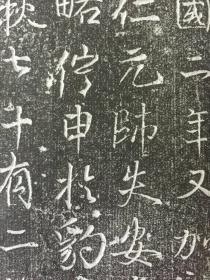 國二年又加
仁元帥失安
略佇申於豹
秋七十有二